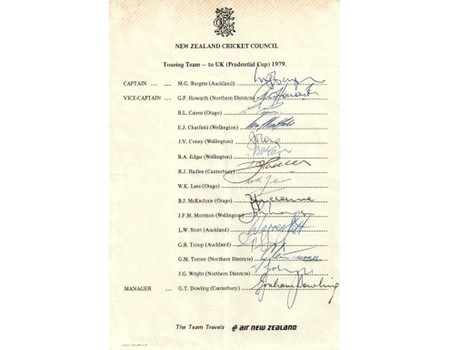 NEW ZEALAND CRICKET COUNCIL
Touring Team – to UK (Prudential Cup) 1979.
CAPTAIN .... M.G. Burgess (Auckland)
VICE-CAPTAIN .... G.P. Howarth (Northern Districts)
B.L. Cairns (Otago)
E.J. Chatfield (Wellington)
J.V. Coney (Wellington)
B.A. Edgar (Wellington)
R.J. Hadlee (Canterbury)
W.K. Lees (Otago)
B.J. McKechnie (Otago)
J.F.M. Morrison (Wellington)
L.W. Stott (Auckland)
G.B. Troup (Auckland)
G.M. Turner (Northern Districts)
J.G. Wright (Northern Districts)
MANAGER .... G.T. Dowling (Canterbury) Graham Dowling
The Team Travels air new zealand